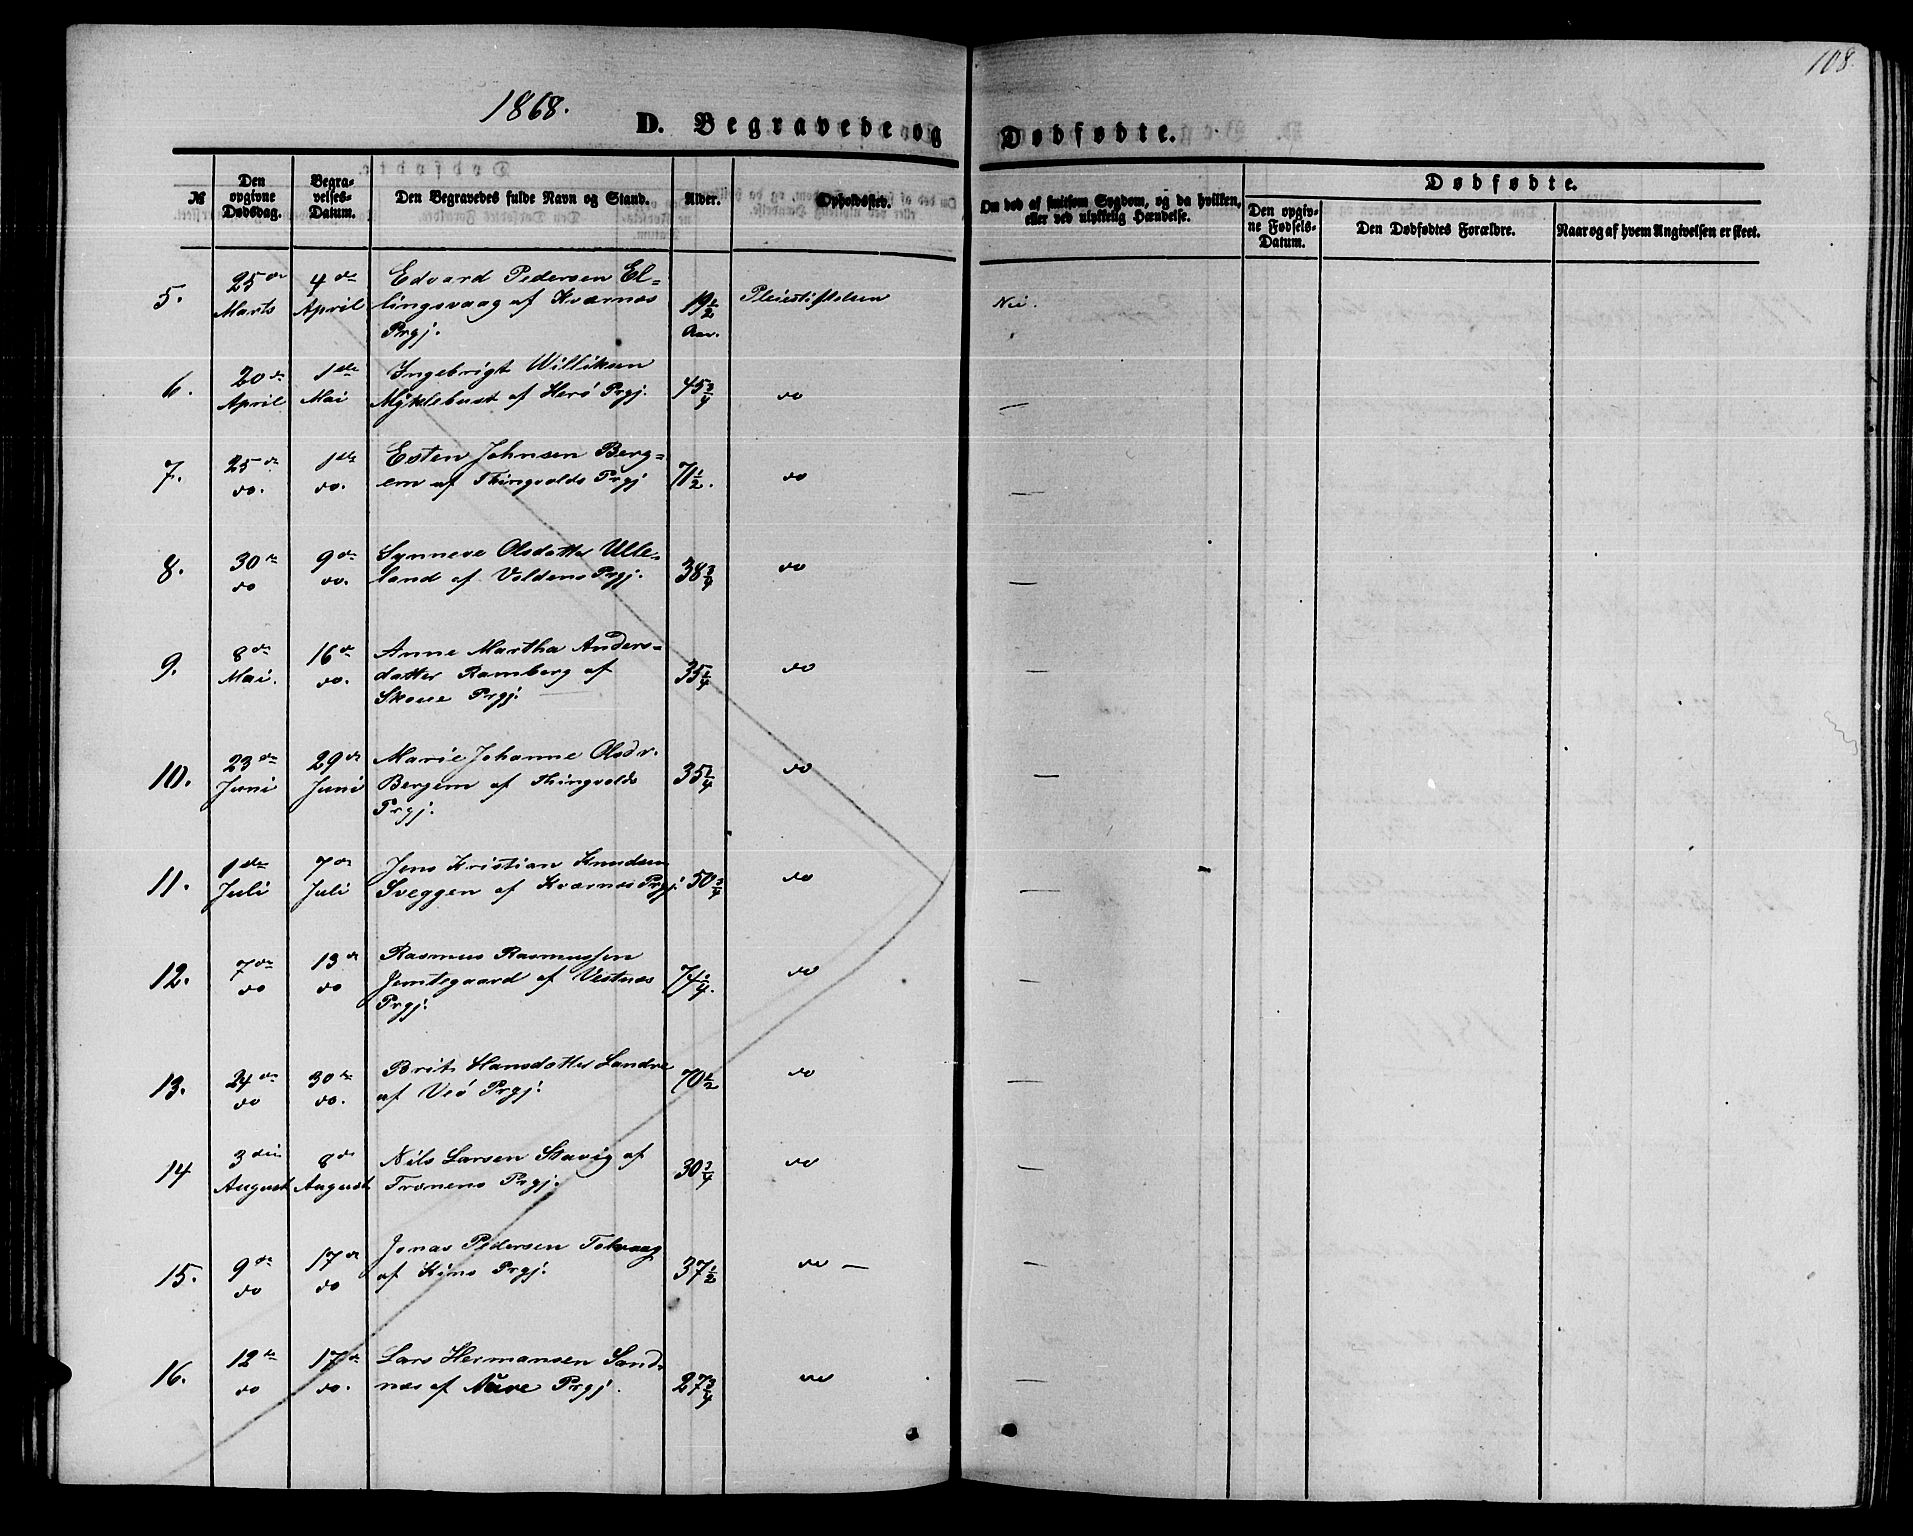 108.
1868.
D. Begravede og Dødfødte.
№
Den opgivne Dødsdag.
Begravelses-Datum.
Den Begravedes fulde Navn og Stand.
Alder.
Opholdssted.
Om død af smitsom Sygdom, og da hvilken, eller ved ulykkelig Hændelse.
Dødfødte.
Den opgivne Fødsels-Datum.
Den Dødfødtes Forældre.
Naar og af hvem Angivelsen er skeet.
5. 25de Marts 4de April Edvard Pedersen El-
lingsvaag af Kværnes
Prgj. 19½ Aar. Pleiestiftelsen Nei.
6. 20de April 1ste Mai Ingebrigt Williksen
Myklebust af Herö Prgj. 45¾ do —
7. 25de do. 1ste do. Esten Johnsen Berg-
em af Thingvolds Prgj 71½. do —
8. 30te do 9de do. Synneve Olsdatter Ulle-
land af Voldens Prgj. 38¾ do —
9. 8de Mai. 16de do. Anne Martha Anders-
datter Ramberg af
Skoue Prgj. 35¼ do —
10. 23de Juni 29de Juni Marie Johanne Olsdr.
Bergem af Thingvolds
Prgj. 35¼ do —
11. 1ste Juli 7de Juli Jens Kristian Knudsen
Sveggen af Kværnes Prgj. 50¾ do —
12. 7de do 13de do Rasmus Rasmussen
Jemtegaard af Vestnæs
Prgj. 74¼. do —
13. 24de do 30te do. Brit Hansdatter Sandve
af Veö Prgj. 70½ do —
14 3die August 8de August Nils Larsen Stavig af
Frænens Prgj. 30¾ do —
15. 9de do 17de do Jonas Pedersen Tokvaag
af Hims Prgj. 37½ do — —
16. 12te do 17de do. Lars Hermansen Sand-
næs af Aure Prgj. 27¾ do —